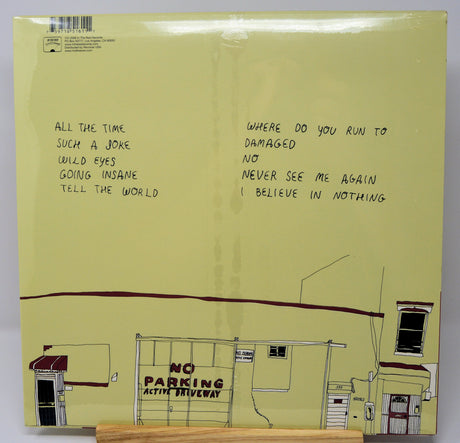 ALL THE TIME
SUCH A JOKE
WILD EYES
GOING INSANE
TELL THE WORLD
WHERE DO YOU RUN TO
DAMAGED
NO
NEVER SEE ME AGAIN
I BELIEVE IN NOTHING
NO
PARKING
ACTIVE DRIVEWAY